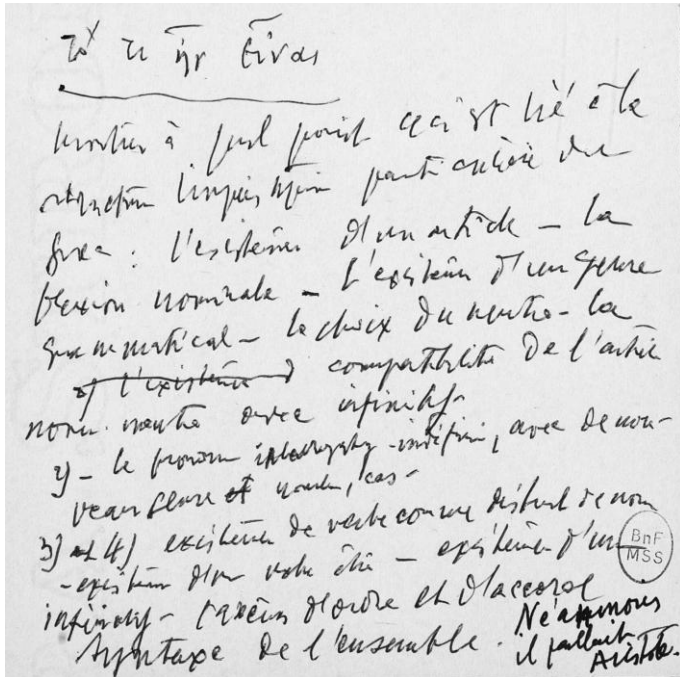 τὸ τί ἦν εἶναι
montrer à quel point ceci est lié à la
structure linguistique particulière du
grec : l'existence d'un article – la
flexion nominale – l'existence d'un genre
grammatical – le choix du neutre – la
compatibilité de l'article
nom. neutre avec infinitif –
2) – le pronom interrogatif-indéfini, avec de nou-
veau genre et nombre, cas –
3) et 4) existence de verbe comme distinct de nom
– existence d'un verbe être – existence d'un
infinitif – d'ordre et d'accord
Syntaxe de l'ensemble. Néanmoins
il fallait
Aristote.
BnF
MSS